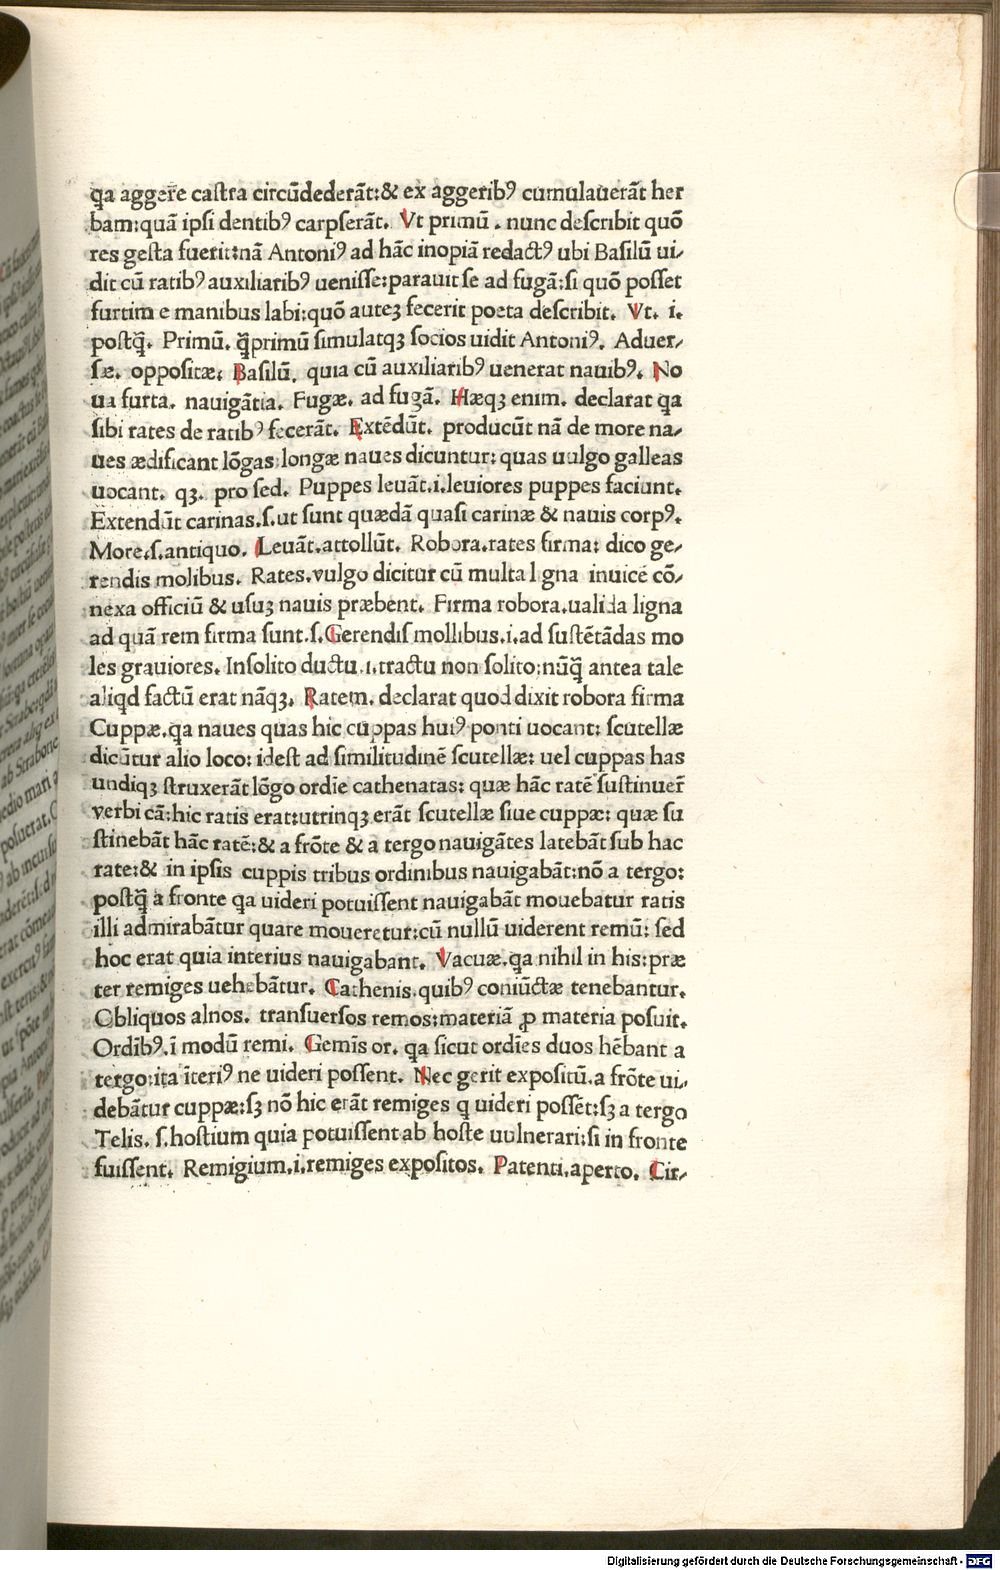 q̄a aggere castra circūdederāt:& ex aggeribꝰ cumulauerāt her
bam:quā ipsi dentibꝰ carpserāt. Vt primū . nunc describit quō
res gesta fuerit:nā Antoniꝰ ad hāc inopiā redactꝰ ubi Basilū ui⸗
dit cū ratibꝰ auxiliaribꝰ uenisse:parauit se ad fugā:si quō posset
furtim e manibus labi:quō auteʒ fecerit poeta describit. Vt. i.
postq̄̄. Primū. q̄̄primū simulatqʒ socios uidit Antoniꝰ. Aduer⸗
sæ. oppositæ. Basilū. quia cū auxiliaribꝰ uenerat nauibꝰ. No
ua furta. nauigātia. Fugæ. ad fugā. Hæqʒ enim. declarat q̄a
sibi rates de ratibꝰ fecerāt. Extēdūt. producūt nā de more na⸗
ues ædificant lōgas:longæ naues dicuntur: quas uulgo galleas
uocant. qʒ. pro sed. Puppes leuāt.i.leuiores puppes faciunt.
Extendūt carinas.s.ut sunt quædā quasi carinæ & nauis corpꝰ.
More.s.antiquo. Leuāt.attollūt. Robora.rates firma: dico ge⸗
rendis molibus. Rates.vulgo dicitur cū multa ligna inuicē cō⸗
nexa officiū & usuʒ nauis præbent. Firma robora.ualida ligna
ad quā rem firma sunt.s.Gerendis mollibus.i.ad sustētādas mo
les grauiores. Insolito ductu.i.tractu non solito:nūq̄̄ antea tale
aliq̄d factū erat nāqʒ. Ratem. declarat quod dixit robora firma
Cuppæ.q̄a naues quas hic cuppas huiꝰ ponti uocant: scutellæ
dicūtur alio loco: idest ad similitudinē scutellæ: uel cuppas has
undiqʒ struxerāt lōgo ordīe cathenatas: quæ hāc ratē sustinuer̄
verbi cā:hic ratis erat:utrinqʒ erāt scutellæ siue cuppæ: quæ su
stinebāt hāc ratē:& a frōte & a tergo nauigātes latebāt sub hac
rate:& in ipsis cuppis tribus ordinibus nauigabāt:nō a tergo:
postq̄̄ a fronte q̄a uideri potuissent nauigabāt mouebatur ratis
illi admirabātur quare moueretur:cū nullū uiderent remū: sed
hoc erat quia interius nauigabant. Vacuæ.q̄a nihil in his:præ
ter remiges uehebātur. Cathenis.quibꝰ coniūctæ tenebantur.
Obliquos alnos. transuersos remos:materiā ꝓ materia posuit.
Ordībꝰ.ī modū remi. Gemīs or. q̄a sicut ordīes duos hēbant a
tergo:ita īteriꝰ ne uideri possent. Nec gerit expositū.a frōte ui⸗
debātur cuppæ:sʒ nō hic erāt remiges q̄ uideri possēt:sʒ a tergo
Telis. s.hostium quia potuissent ab hoste uulnerari:si in fronte
fuissent. Remigium.i.remiges expositos. Patenti.aperto. Cir⸗
Digitalisierung gefördert durch die Deutsche Forschungsgemeinschaft - DFG